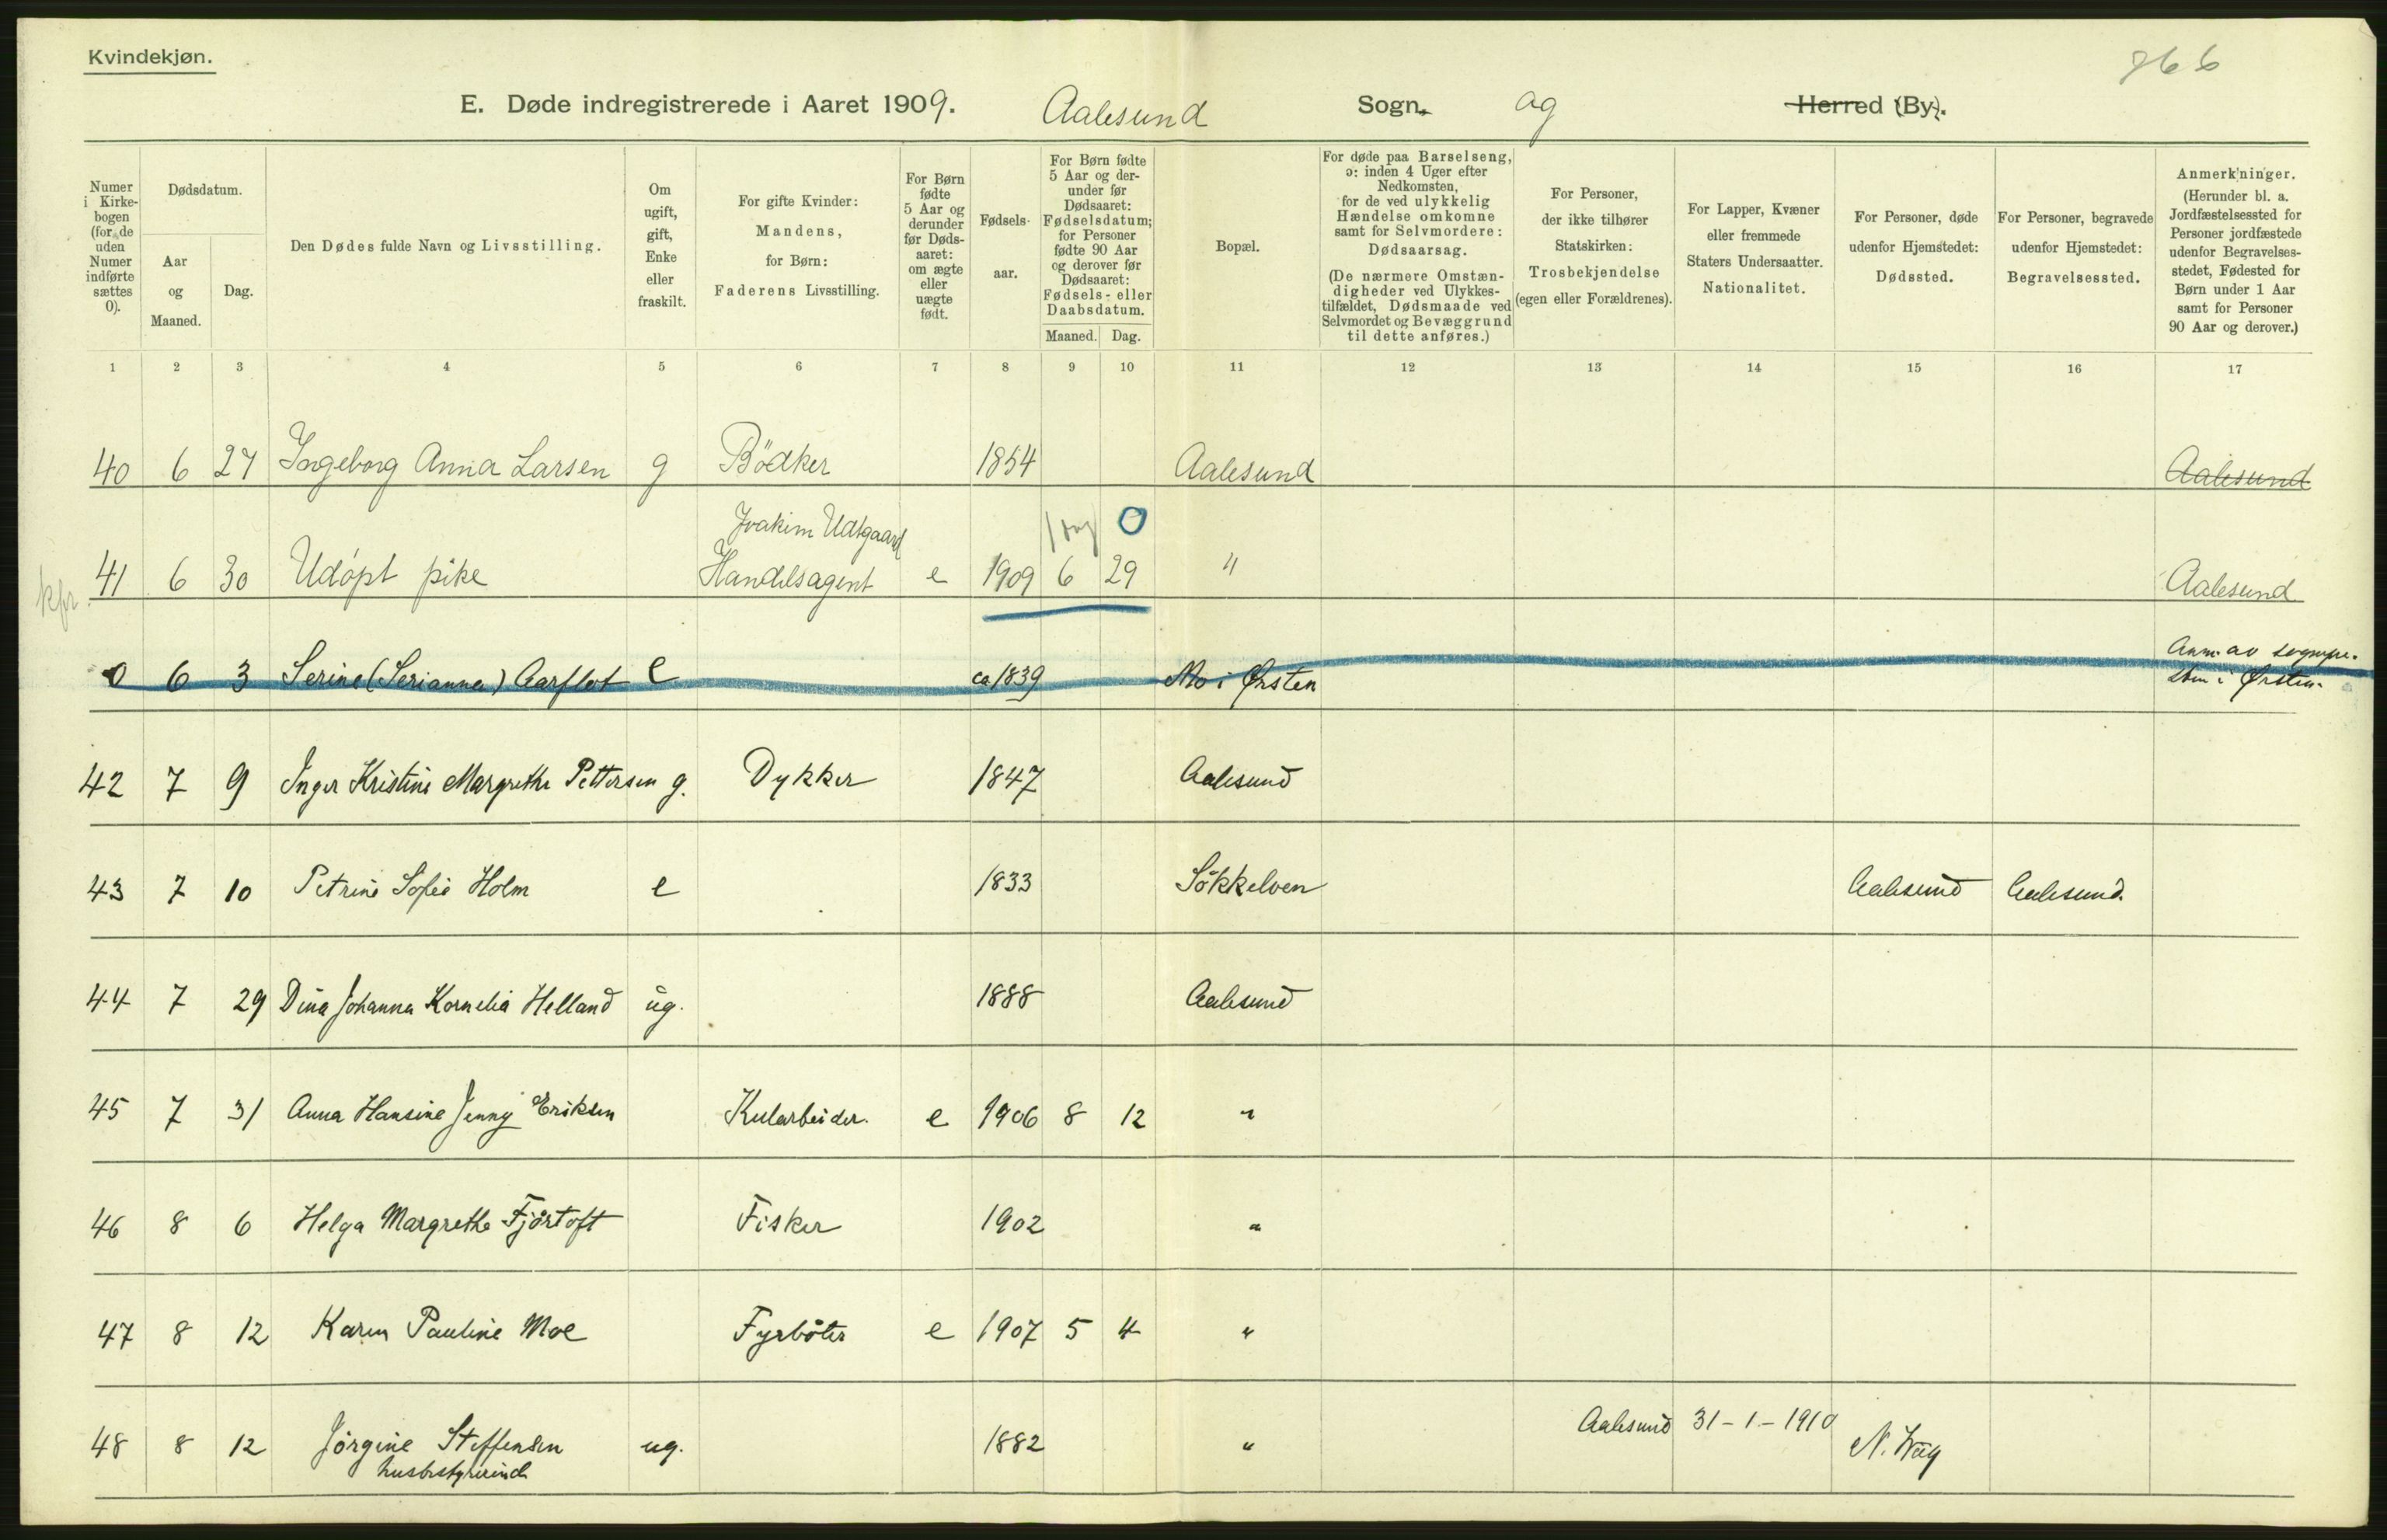 Kvindekjøn.
766
E. Døde indregistrerede i Aaret 1909. Aalesund Sogn. og Herred (By).
Numer i Kirkebogen (for de uden Numer indførte sættes 0).
Dødsdatum.
Aar og Maaned.
Dag.
Den Dødes fulde Navn og Livsstilling.
Om ugift, gift, Enke eller fraskilt.
For gifte Kvinder: Mandens, for Børn: Faderens Livsstilling.
For Børn fødte 5 Aar og derunder før Dødsaaret: om ægte eller uægte født.
Fødselsaar.
For Børn fødte 5 Aar og derunder før Dødsaaret: Fødselsdatum; for Personer fødte 90 Aar og derover før Dødsaaret: Fødsels- eller Daabsdatum.
Maaned. Dag.
Bopæl.
For døde paa Barselseng, ɔ: inden 4 Uger efter Nedkomsten, for de ved ulykkelig Hændelse omkomne samt for Selvmordere: Dødsaarsag. (De nærmere Omstændigheder ved Ulykkestilfældet, Dødsmaade ved Selvmordet og Bevæggrund til dette anføres.)
For Personer, der ikke tilhører Statskirken: Trosbekjendelse (egen eller Forældrenes).
For Lapper, Kvæner eller fremmede Staters Undersaatter. Nationalitet.
For Personer, døde udenfor Hjemstedet: Dødssted.
For Personer, begravede udenfor Hjemstedet: Begravelsessted.
Anmerkninger. (Herunder bl. a. Jordfæstelsessted for Personer jordfæstede udenfor Begravelsesstedet, Fødested for Børn under 1 Aar samt for Personer 90 Aar og derover.)
1 2 3 4 5 6 7 8 9 10 11 12 13 14 15 16 17
40 6 27 Ingeborg Anna Larsen g Bödker 1854 Aalesund Aalesund
Joakim Udtgaard 1 dag 0
41 6 30 Udöpt pike Handelsagent e 1909 6 29 " Aalesund
0 6 3 Serine (Serianna) Aarflot e ca 1839 Mo i Ørsten Anm. av sognepr.
sten i Ørsten.
42 7 9 Inger Kristine Margrethe Pettersen g. Dykker 1847 Aalesund
43 7 10 Petrine Sofie Holm e 1833 Sökkelven Aalesund Aalesund.
44 7 29 Dina Johanna Kornelia Helland ug. 1888 Aalesund
45 7 31 Anna Hansine Jenny Eriksen Kularbeider. e 1906 8 12 "
46 8 6 Helga Margrethe Fjörtoft Fisker 1902 "
47 8 12 Karen Pauline Moe Fyrböter e 1907 5 4 "
48 8 12 Jörgine Steffensen ug. 1882 " Aalesund 31-1-1910
husbestyrerinde N. Wüg